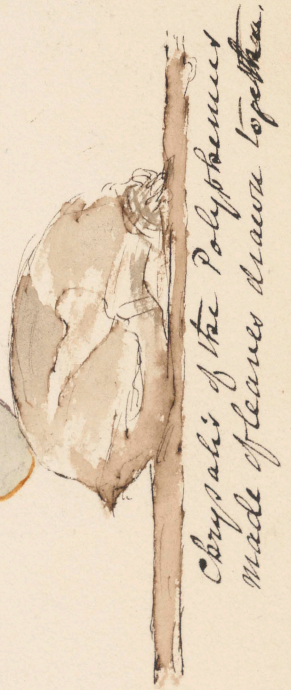 Chrysalis of the Polyphemus
made of leaves drawn together.